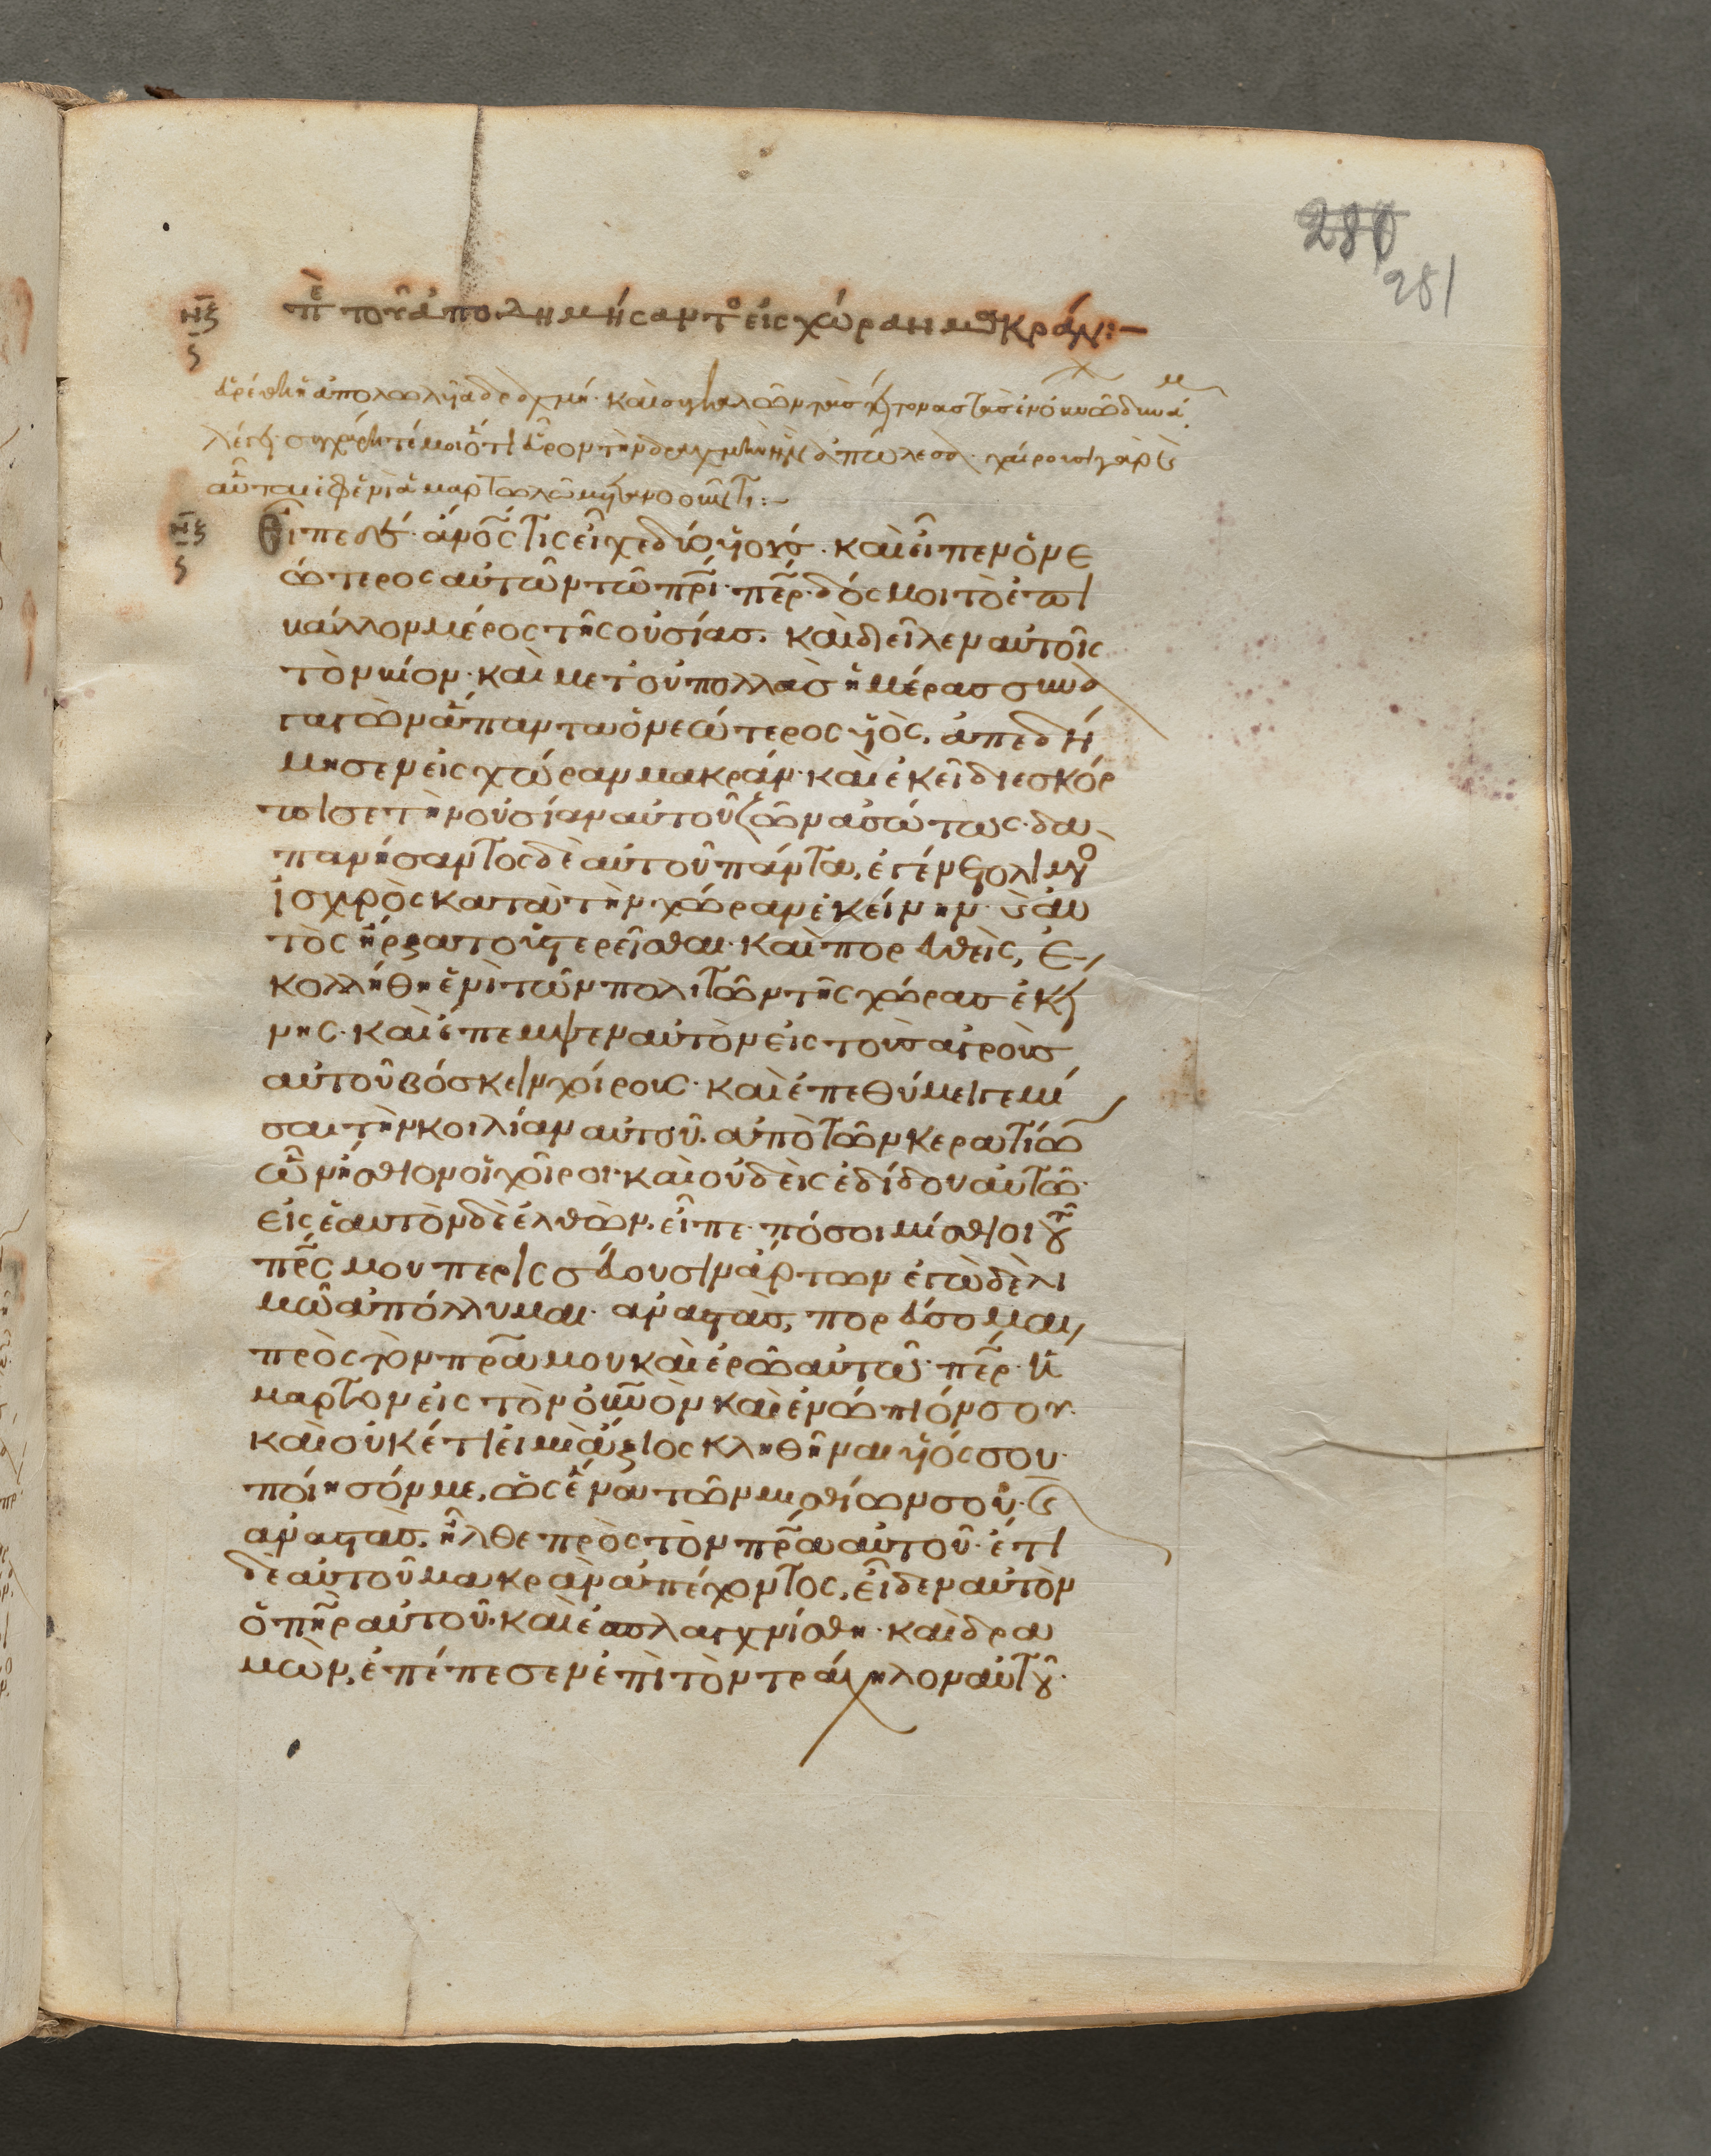 280
281
πε τοῦ ἀποδημήσαντο εἰς χώραν μακράν:—
εὑρέθη ἡ ἀπολωλυῖα δραχμή· καὶ συγκαλῶν τὰς γείτονας
λέγει· συγχάρητέ μοι ὅτι εὗρον τὴν δραχμὴν ἣν ἀπώλεσα· χαίρουσι γὰρ καὶ
αὗται ἐφ' ἑνὶ ἁμαρτωλῶ μετανοοῦντι:—
Εἶπεν ἀνος τις εἶχε δύο υἱούς· καὶ εἶπεν ὁ νε
ώτερος αὐτῶν τῶ πρι· περ· δός μοι τὸ ἐπι
βάλλον μέρος τῆς οὐσίας· καὶ διεῖλεν αὐτοῖς
τὸν βίον· καὶ μετ' οὐ πολλὰς ἡμέρας συνα
γαγὼν ἅπαντα ὁ νεώτερος υἱὸς, ἀπεδή
μησεν εἰς χώραν μακράν· καὶ ἐκεῖ διεσκόρ
πισε τὴν οὐσίαν αὐτοῦ ζῶν ἀσώτως· δα
πανήσαντος δὲ αὐτοῦ πάντα, ἐγένετο λιμο
ἰσχυρὸς κατὰ τὴν χώραν ἐκείνην· καὶ αὐ
τὸς ἤρξατο ὑστερεῖσθαι· καὶ πορευθεὶς, ἐ
κολλήθη ἑνὶ τῶν πολιτῶν τῆς χώρας ἐκεί
νης· καὶ ἔπεμψεν αὐτὸν εἰς τοὺς ἀγροὺς
αὐτοῦ βόσκειν χοίρους· καὶ ἐπεθύμει γεμί
σαι τὴν κοιλίαν αὐτοῦ· ἀπὸ τῶν κερατίων
ὧν ἤσθιον οἱ χοῖροι· καὶ οὐδεὶς ἐδίδου αὐτῶ·
εἰς ἑαυτὸν δὲ ἐλθὼν, εἶπε· πόσοι μίσθιοι τοῦ
πρς μου περισσεύουσιν ἄρτων ἐγὼ δὲ λι
μῶ ἀπόλλυμαι· ἀναστὰς, πορεύσομαι
πρὸς τὸν πρα μου καὶ ἐρῶ αὐτῶ· περ· ἥ
μαρτον εἰς τὸν οὐνὸν καὶ ἐνώπιόν σου·
καὶ οὐκέτι εἰμὶ ἄξιος κληθῆναι υἱός σου·
ποίησόν με, ὡς ἕνα τῶν μισθίων σου· καὶ
ἀναστὰς, ἦλθε πρὸς τὸν πρα αὐτοῦ· ἔτι
δὲ αὐτοῦ μακρὰν ἀπέχοντος, εἶδεν αὐτὸν
ὁ πηρ αὐτοῦ· καὶ ἐσπλαγχνίσθη· καὶ δρα
μὼν, ἐπέπεσεν ἐπὶ τὸν τράχηλον αὐτοῦ·